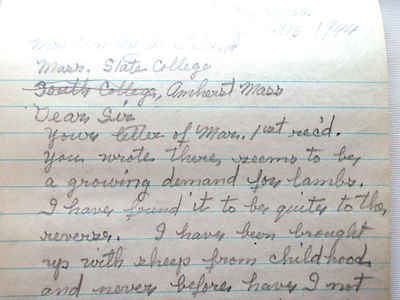 1944
Mass. State College
South College, Amherst Mass
Dear Sir
Your letter of Mar. 1st rec'd.
You wrote there seems to be
a growing demand for lambs.
I have found it to be quite to the
reverse. I have been brought
up with sheep from childhood
and never before have I not